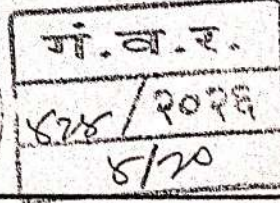 गं.व.र.
४२४/२०२६
४/२०